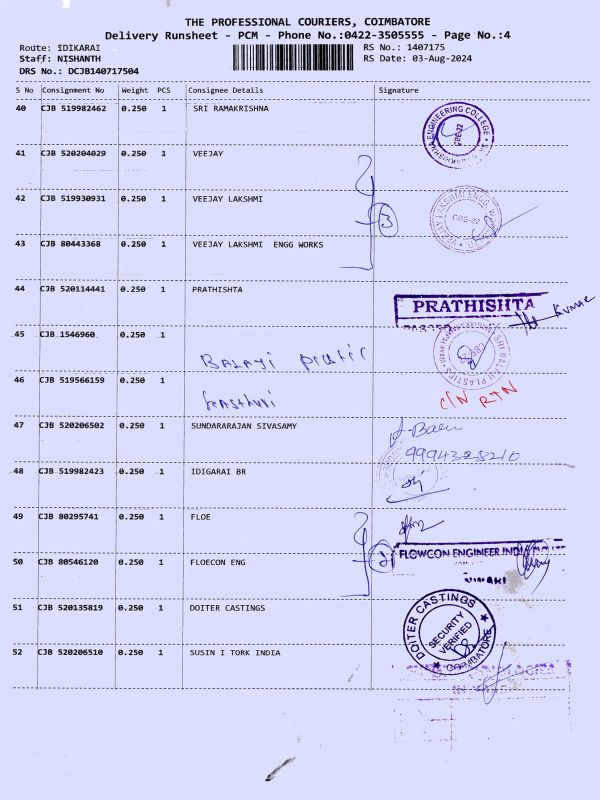 THE PROFESSIONAL COURIERS, COIMBATORE
Delivery Runsheet - PCM - Phone No.:0422-3505555 - Page No.:4
Route: IDIKARAI
RS No.: 1407175
Staff: NISHANTH
RS Date: 03-Aug-2024
DRS No.: DCJB140717504
S No Consignment No Weight PCS Consignee Details Signature
40 CJB 519982462 0.250 1 SRI RAMAKRISHNA
ENGINEERING COLLEGE
CBE-22
41 CJB 520204029 0.250 1 VEEJAY
42 CJB 519930931 0.250 1 VEEJAY LAKSHMI
3
VEEJAY LAKSHMI ENGG WORKS
CBE-22
43 CJB 80443368 0.250 1 VEEJAY LAKSHMI ENGG WORKS
44 CJB 520114441 0.250 1 PRATHISHTA
PRATHISHTA
Kumar
45 CJB 1546960 0.250 1
Balaji plastic
SRI BALAJI PLASTICS
46 CJB 519566159 0.250 1
Kasthuri
C/N RTN
47 CJB 520206502 0.250 1 SUNDARARAJAN SIVASAMY
9994328210
48 CJB 519982423 0.250 1 IDIGARAI BR
49 CJB 80295741 0.250 1 FLOE
2
50 CJB 80546120 0.250 1 FLOECON ENG
FLOWCON ENGINEER INDIA
51 CJB 520135819 0.250 1 DOITER CASTINGS
DOITER CASTINGS
SECURITY
VERIFIED
COIMBATORE
52 CJB 520206510 0.250 1 SUSIN I TORK INDIA